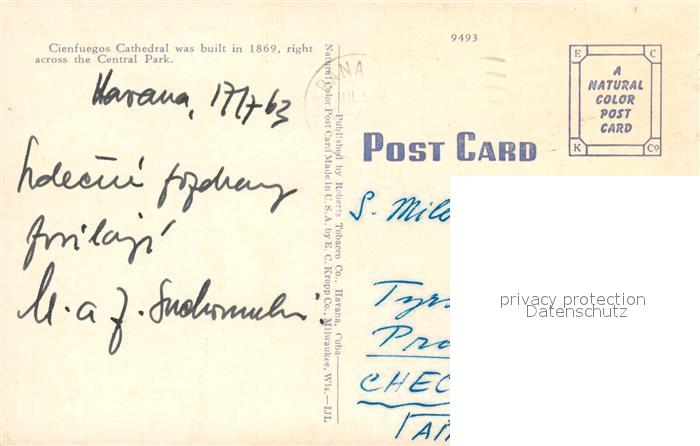 9493
Cienfuegos Cathedral was built in 1869, right
across the Central Park.
Havana, 17/7 63
Srdečné pozdravy
posílají
M. a J.
—Published by Roberts Tobacco Co., Havana, Cuba—
Natural Color Post Card Made in U.S.A. by E. C. Kropp Co., Milwaukee, Wis.—IJL
POST CARD
E C
A
NATURAL
COLOR
POST
CARD
K Co
S. Milo
Tyrs
Pra
CHEC
privacy protection
Datenschutz